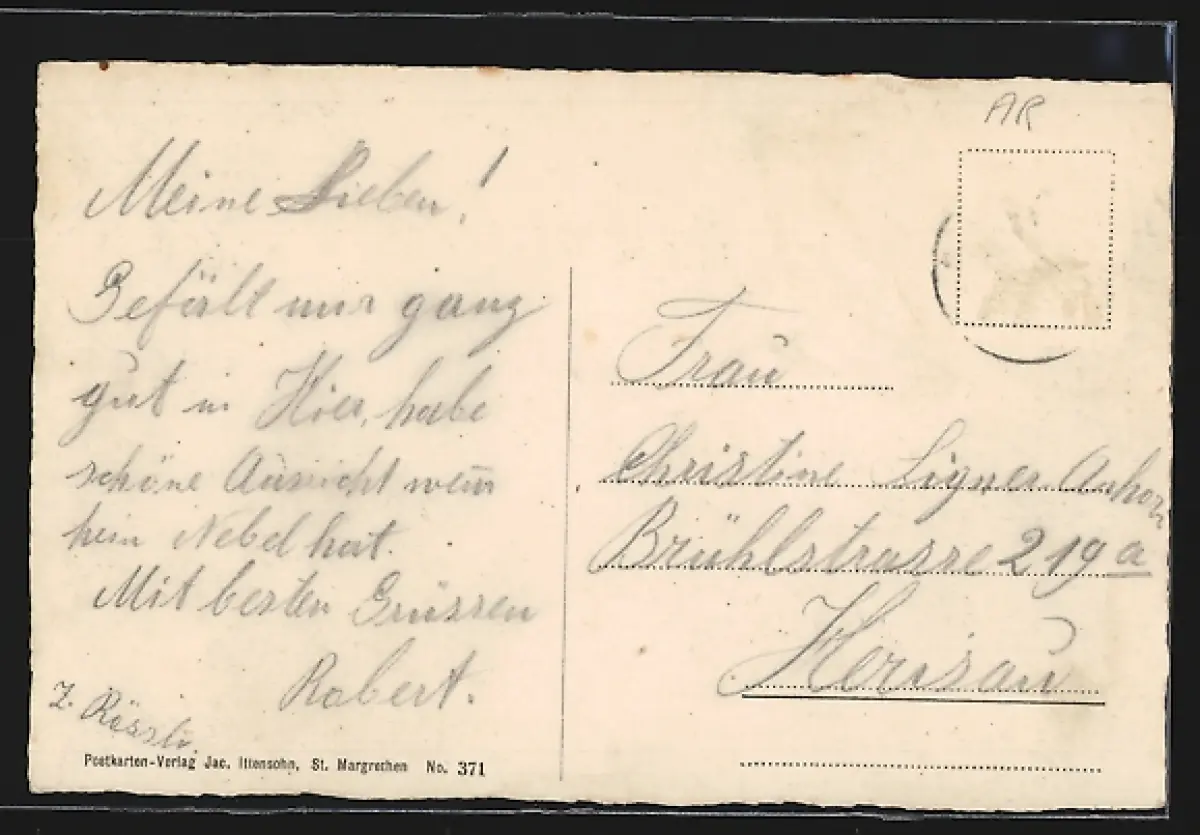 AR
Meine Lieben!
Gefällt mir ganz
gut in Hier, habe
schöne Aussicht wenn
kein Nebel hat.
Mit besten Grüssen
Robert.
z. Rössli
Postkarten-Verlag Jac. Ittensohn, St. Margrethen No. 371
Frau
Christine Signer Anhorn
Brühlstrasse 219a
Herisau